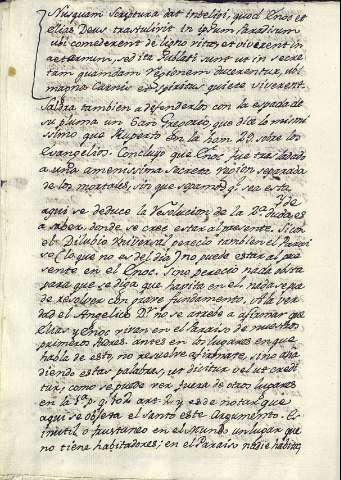 Nusquam Scriptura dat inteligi, quod Enoc et
elias Deus trastulirit in ipsum Paradisum
ubi comederent de ligno vitæ, et viverent in
aeternum, sed ita sublati sunt ut in secre
tam quamdam regionem ducerentur, ubi
magna Carnis et Spiritus quiete viverent.
Saldra tambien a defenderlos con la espada de
su pluma un San Gregorio, que dice lo mismi
ssimo que Ruperto en la hom. 29. sobre los
Evangelios. Concluyo que Enoc fue trasladado
a una amenissima secreta region separada
de los mortales, sin que sepamos qͤ. sea esta
y de
aqui se deduce la resolucion de la 2ª duda, es
a saber, donde se cree estar al presente. Si con
el Dilubio Universal perecio tambien el Parai
so (lo que no es del dia) no puede estar al pre
sente en el Enoc. Si no perecio nada obsta
para que se diga que habita en el nada, sepa
de resolver con grave fundamento. A la ver
dad el Angelico Dʳ. no se atrebe a afirmar que
Elias y Enoc viven en el Paraiso de nuestros
primeros Padres. antes en los lugares en que
habla de esto, no resuelve afirmate, sino aña
diendo estas palabras, ut dicitur vel ut credi
tur, como se puede ver fuera de otros lugares
en la 1ª p. q. 102 art. 2. y es de notar que
aqui se objeta el santo este Argumento. Es
inutil o faustaneo en el Mundo un lugar que
no tiene habitadores; en el Paraiso nadie habita,